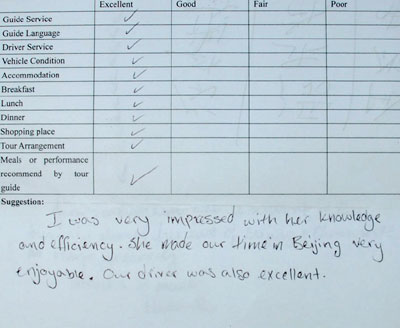 Excellent Good Fair Poor
Guide Service
Guide Language
Driver Service
Vehicle Condition
Accommodation
Breakfast
Lunch
Dinner
Shopping place
Tour Arrangement
Meals or performance
recommend by tour
guide
Suggestion:
I was very impressed with her knowledge
and efficiency. She made our time in Beijing very
enjoyable. Our driver was also excellent.